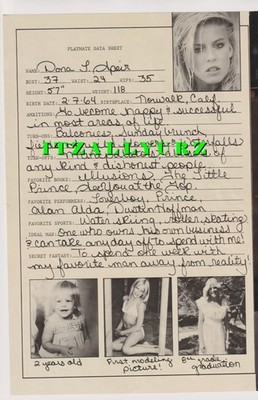 PLAYMATE DATA SHEET
NAME: Dona L. Speir
BUST: 37 WAIST: 24 HIPS: 35
HEIGHT: 5'7" WEIGHT: 118
BIRTH DATE: 2-7-64 BIRTHPLACE: Norwalk, Calif.
AMBITIONS: To become happy & successful
in most areas of life
TURN-ONS: Balconies, Sunday brunch,
ITZALLYURZ
TURN-OFFS:
any kind & dishonest people
FAVORITE BOOKS: Illusions, The Little
Prince, See You at the Top
FAVORITE PERFORMERS: Loverboy, Prince,
Alan Alda, Dustin Hoffman
FAVORITE SPORTS: Water skiing, roller skating
IDEAL MAN: One who owns his own business
& can take any day off to spend with me!
SECRET FANTASY: To spend one week with
my favorite man away from reality!
2 years old
First modeling
picture!
8th grade
graduation